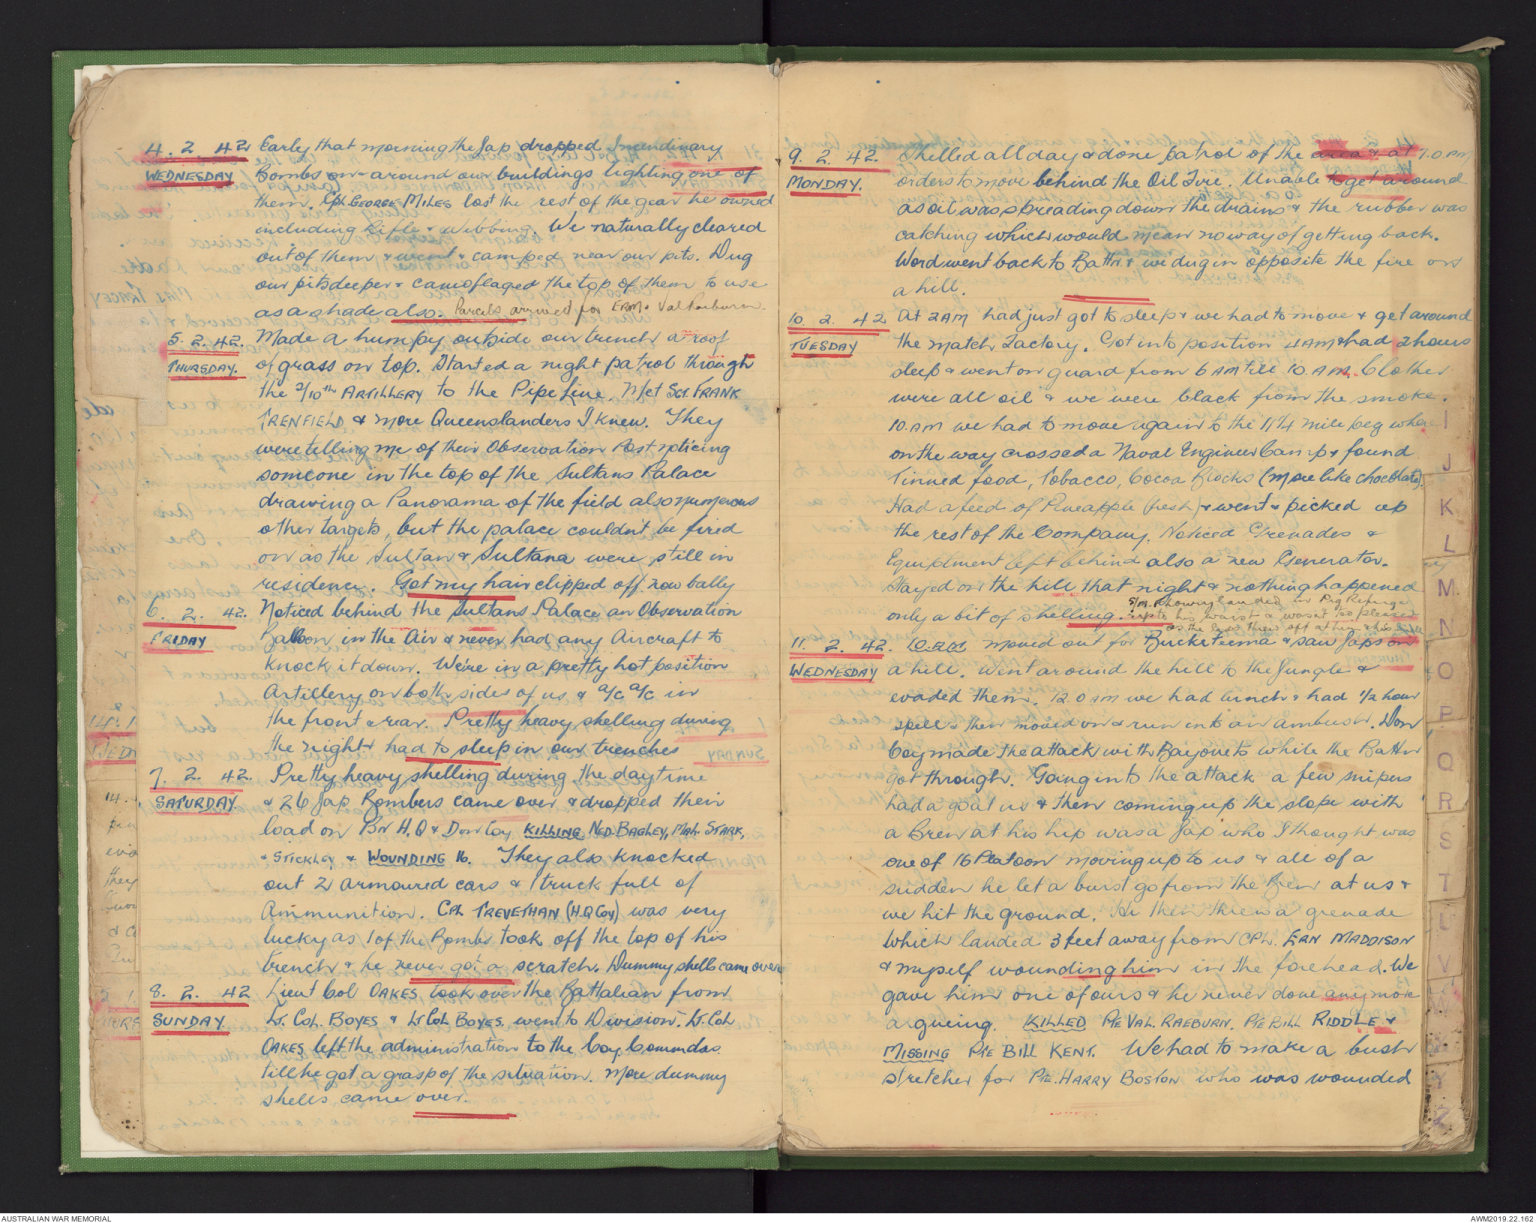 4. 2 42 Early that morning the Jap dropped Incendinary
WEDNESDAY Bombs on & around our buildings lighting one of
them. Cpl GEORGE MILES lost the rest of the gear he owned
including Rifle & Webbing. We naturally cleared
out of them & went & camped near our pits. Dug
our pits deeper & camoflaged the top of them to use
as a shade also. Parcels arrived for ERN &
5. 2. 42. Made a humpy outside our trench a roof
THURSDAY. of grass on top. Started a night patrol through
the 2/10th ARTILLERY to the Pipe line. Met SGT. FRANK
TRENFIELD & more Queenslanders I knew. They
were telling me of their Observation Post noticing
someone in the top of the Sultans Palace
drawing a Panorama of the field also numerous
other targets, but the palace couldn't be fired
on as the Sultan & Sultana were still in
residence. Got my hair clipped off now bally
6. 2. 42. Noticed behind the Sultans Palace an Observation
FRIDAY Balloon in the Air & never had any Aircraft to
knock it down. We're in a pretty hot position
Artillery on both sides of us & a/c a/c in
the front & rear. Pretty heavy shelling during
the night & had to sleep in our trenches
7. 2. 42. Pretty heavy shelling during the daytime
SATURDAY & 26 Jap Bombers came over & dropped their
load on Bn H.Q & Don Coy KILLING NED BAGLEY, MAL. STARK,
& STICKLEY & WOUNDING 16. They also knocked
out 2 armoured cars & 1 truck full of
Ammunition. CPL TREVETHAN (H.Q COY) was very
lucky as 1 of the Bombs took off the top of his
trench & he never got a scratch. Dummy shells came over
8. 2. 42 Lieut Col OAKES took over the Battalian from
SUNDAY Lt. COL. BOYES & Lt COL BOYES went to Division. Lt. Col
OAKES left the administration to the Coy Commdas
till he got a grasp of the situation. More dummy
shells came over.
9. 2. 42. Shelled all day & done patrol of the area & at 7.0 PM
MONDAY. orders to move behind the Oil Fire. Unable to get around
as oil was spreading down the drains & the rubber was
catching which would mean no way of getting back.
Word went back to Battn & we dug in opposite the fire on
a hill.
10. 2. 42 At 2AM had just got to sleep & we had to move & get around
TUESDAY the match Factory. Got into position 4AM & had 2 hours
sleep & went on guard from 6 AM till 10. AM. Clothes
were all oil & we were black from the smoke.
10. AM we had to move again to the 11¼ mile peg where
on the way crossed a Naval Engineer Camp & found
Tinned food, Tobacco, Cocoa Blocks (more like chocolate).
Had a feed of Pineapple fresh & went & picked up
the rest of the Company. Noticed Grenades &
Equiptment left behind also a new Generator.
Stayed on the hill that night & nothing happened
only a bit of shelling.
11. 2. 42. moved out for Buckiteema & saw Japs on
WEDNESDAY a hill. Went around the hill to the Jungle &
evaded them. 12.0 AM we had lunch & had ½ hour
spell & then moved on & run into an ambush. Don
Coy made the attack with Bayonets while the Battn
got through. Going into the attack a few snipers
had a go at us & then coming up the slope with
a Bren at his hip was a Jap who I thought was
one of 16 Platoon moving up to us & all of a
sudden he let a burst go from the Bren at us &
we hit the ground. He then threw a grenade
which landed 3 feet away from CPL. ERN MADDISON
& myself wounding him in the forehead. We
gave him one of ours & he never done anymore
argueing. KILLED PTE VAL. RAEBURN. PTE BILL RIDDLE &
MISSING PTE BILL KENT. We had to make a bush
stretcher for PTE. HARRY BOSTON who was wounded
I
J
K
L
M
N
O
P
Q
R
S
T
U
V
W
Y
Z
AUSTRALIAN WAR MEMORIAL
AWM2019.22.162